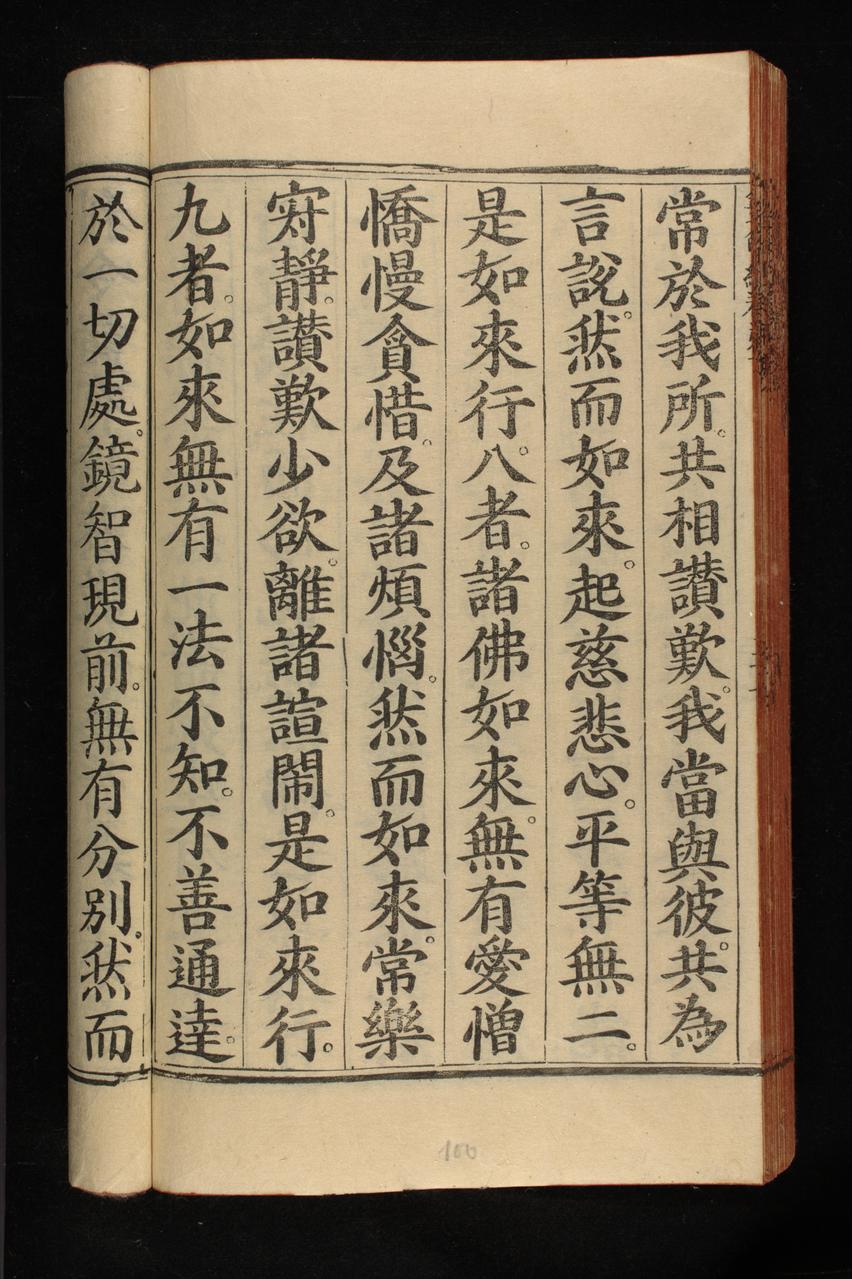 常於我所。共相讚歎。我當與彼。共為
言說。然而如來。起慈悲心。平等無二。
是如來行。八者。諸佛如來。無有愛憎
憍慢貪惜。及諸煩惱。然而如來。常樂
寂靜。讚歎少欲。離諸諠鬧。是如來行。
九者。如來無有一法不知。不善通達。
於一切處。鏡智現前。無有分別。然而
100